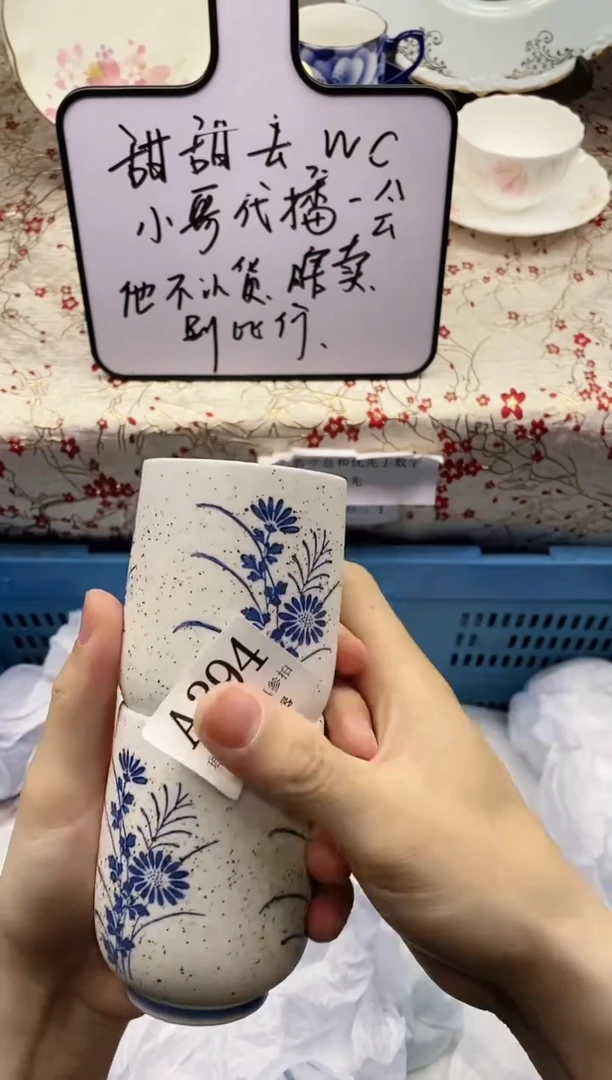 甜甜去WC
小哥代播一会
他不认货、瞎卖、
别比行、
A394